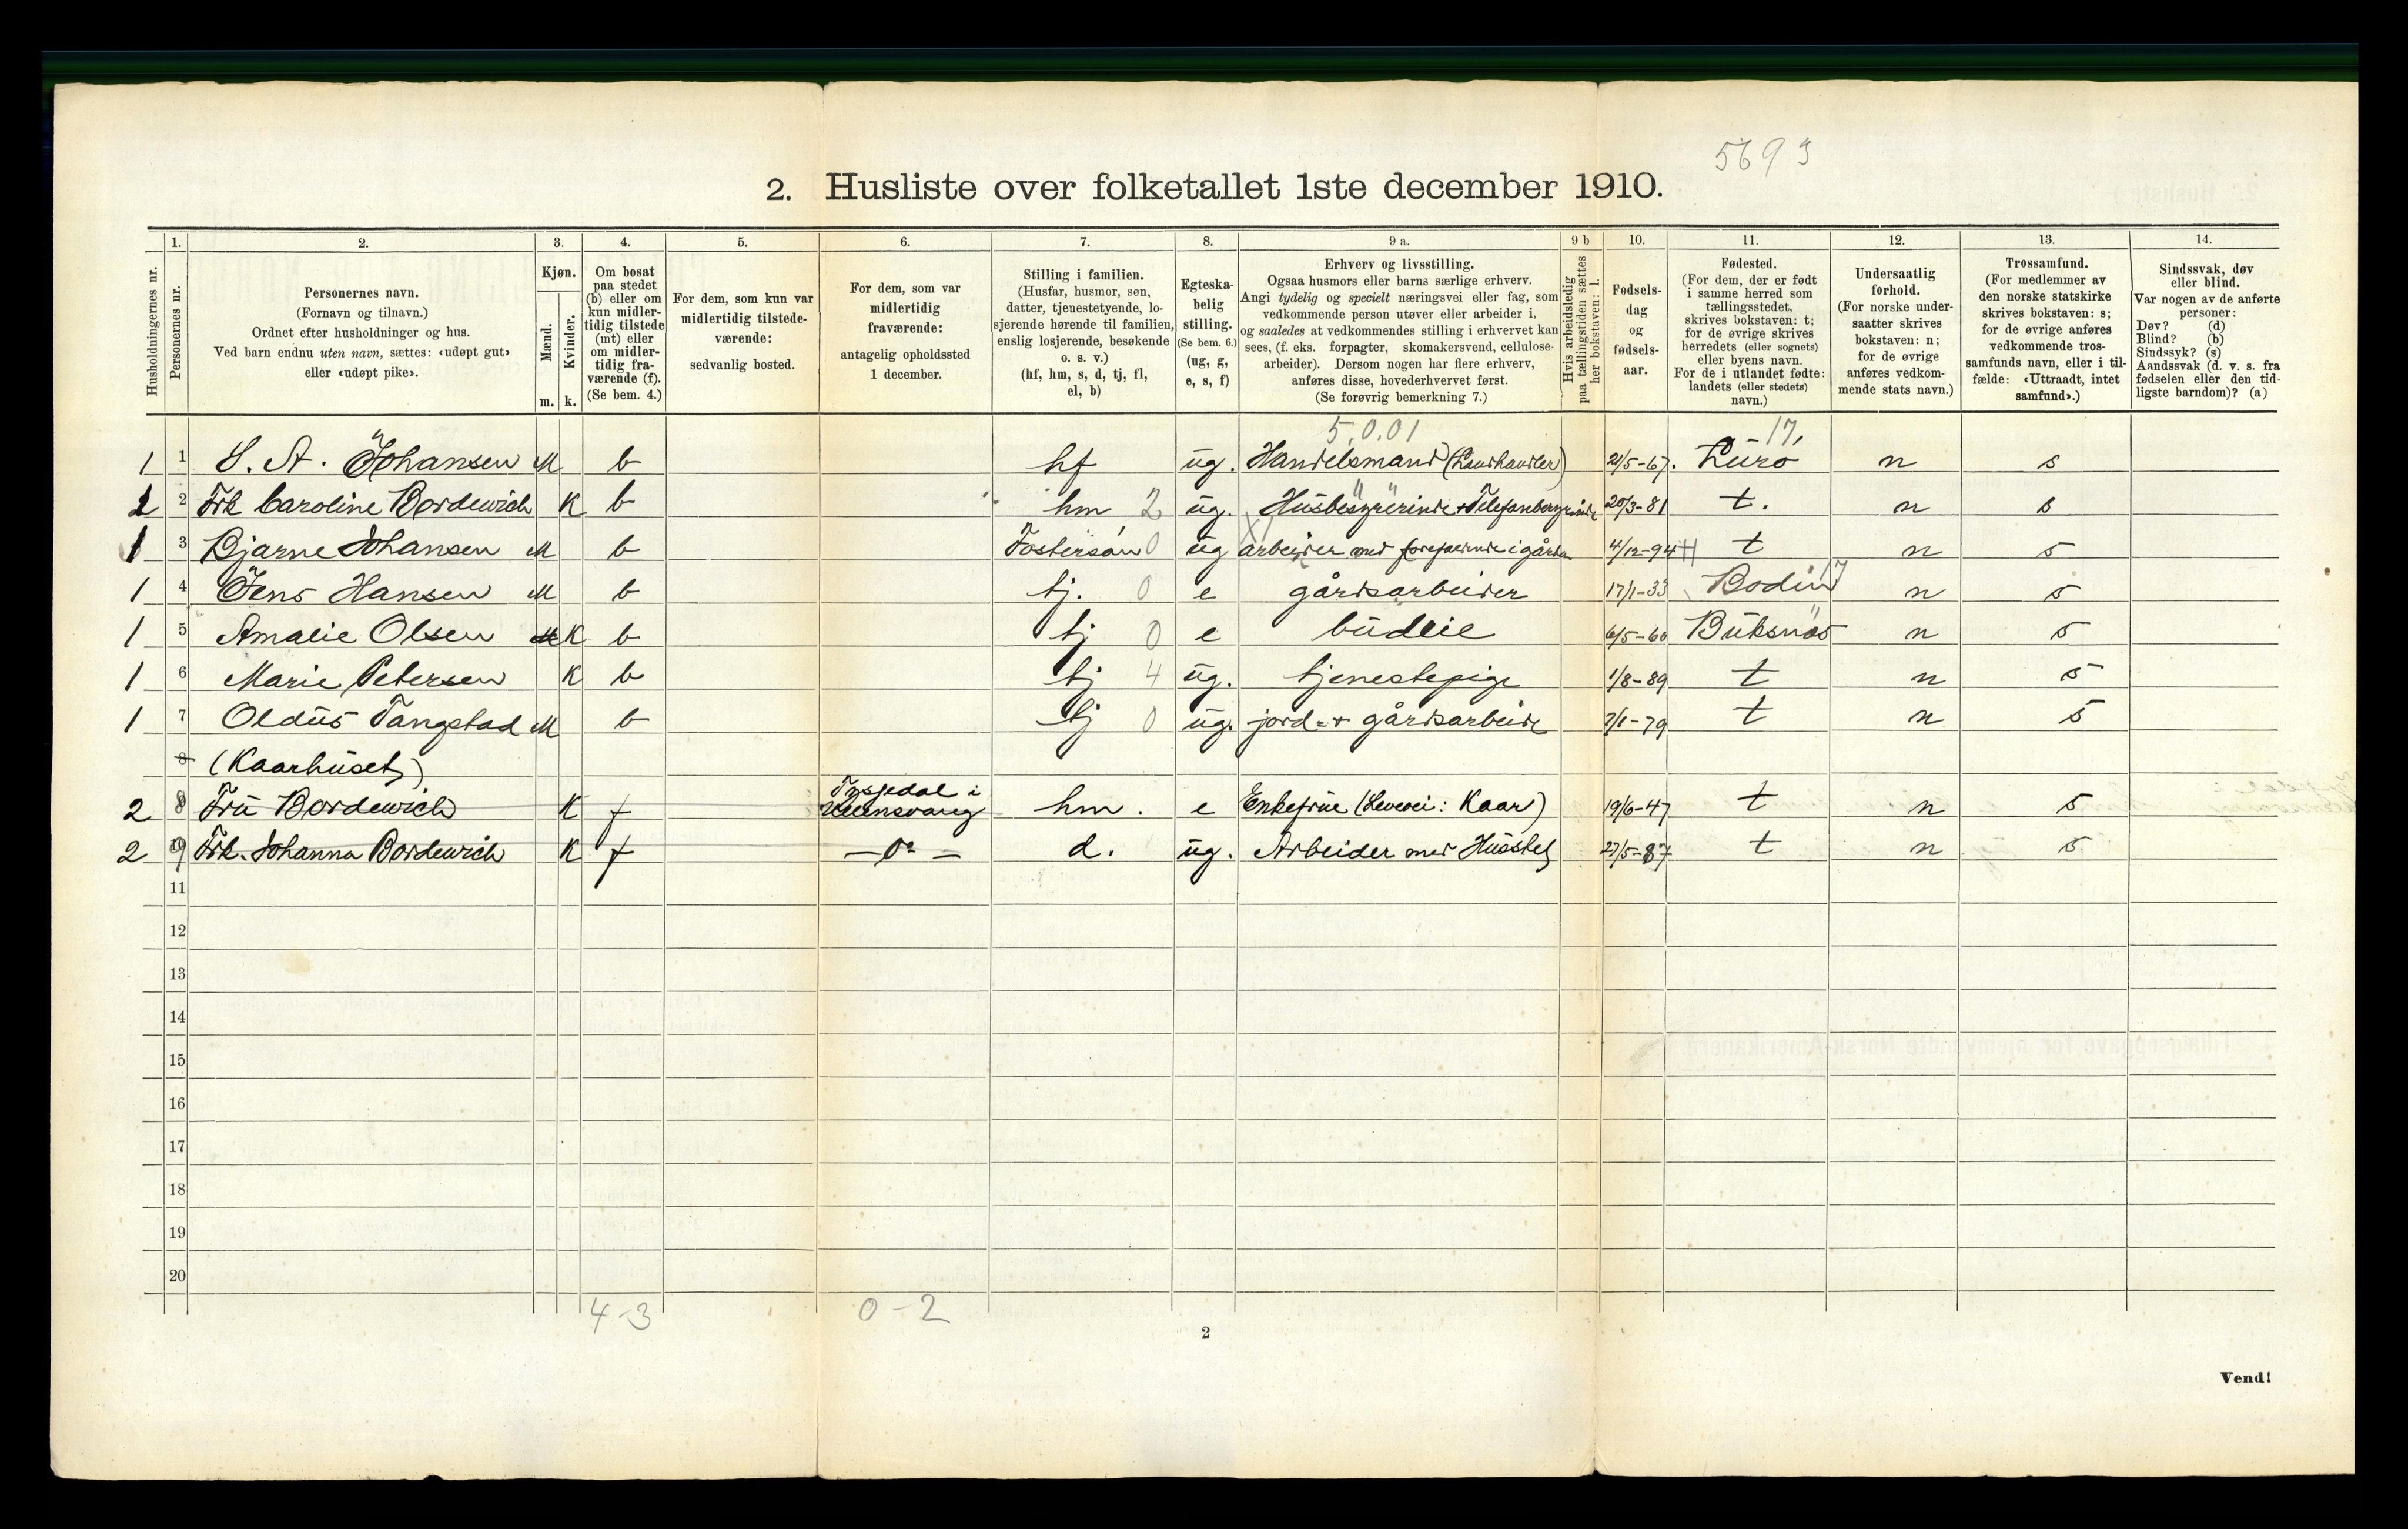 5693
2. Husliste over folketallet 1ste december 1910.
Husholdningernes nr. | 1. Personernes nr. | 2. Personernes navn. (Fornavn og tilnavn.) Ordnet efter husholdninger og hus. Ved barn endnu uten navn, sættes: «udøpt gut» eller «udøpt pike». | 3. Kjøn. Mænd. m. Kvinder. k. | 4. Om bosat paa stedet (b) eller om kun midlertidig tilstede (mt) eller om midlertidig fraværende (f). (Se bem. 4.) | 5. For dem, som kun var midlertidig tilstedeværende: sedvanlig bosted. | 6. For dem, som var midlertidig fraværende: antagelig opholdssted 1 december. | 7. Stilling i familien. (Husfar, husmor, søn, datter, tjenestetyende, losjerende hørende til familien, enslig losjerende, besøkende o. s. v.) (hf, hm, s, d, tj, fl, el, b) | 8. Egteskabelig stilling. (Se bem. 6.) (ug, g, e, s, f) | 9 a. Erhverv og livsstilling. Ogsaa husmors eller barns særlige erhverv. Angi tydelig og specielt næringsvei eller fag, som vedkommende person utøver eller arbeider i, og saaledes at vedkommendes stilling i erhvervet kan sees, (f. eks. forpagter, skomakersvend, cellulosearbeider). Dersom nogen har flere erhverv, anføres disse, hovederhvervet først. (Se forøvrig bemerkning 7.) | 9 b Hvis arbeidsledig paa tællingstiden sættes her bokstaven: l. | 10. Fødselsdag og fødselsaar. | 11. Fødested. (For dem, der er født i samme herred som tællingsstedet, skrives bokstaven: t; for de øvrige skrives herredets (eller sognets) eller byens navn. For de i utlandet fødte: landets (eller stedets) navn.) | 12. Undersaatlig forhold. (For norske undersaatter skrives bokstaven: n; for de øvrige anføres vedkommende stats navn.) | 13. Trossamfund. (For medlemmer av den norske statskirke skrives bokstaven: s; for de øvrige anføres vedkommende trossamfunds navn, eller i tilfælde: «Uttraadt, intet samfund».) | 14. Sindssvak, døv eller blind. Var nogen av de anførte personer: Døv? (d) Blind? (b) Sindssyk? (s) Aandssvak (d. v. s. fra fødselen eller den tidligste barndom)? (a)
5.0.01 17
1 1 S. A. Johansen M b hf ug. Handelsmand (Landhandler) 21/5-67. Lurö n s
1 2 Frk Caroline Bordewich K b hm 2 ug. Husbestyrerinde + Telefonbestyrerinde 20/3-81 t. n s
1 3 Bjarne Johansen M b Fostersön 0 ug arbeider med forefaldende i gården 4/12-94 t n s
1 4 Jens Hansen M b tj. 0 e gårdsarbeider 17/1-33 Bodin 17 n s
1 5 Amalie Olsen K b tj 0 e budeie 6/5-60 Buksnäs n s
1 6 Marie Petersen K b tj 4 ug. tjenestepige 1/8-89 t n s
1 7 Oldus Tangstad M b tj 0 ug. jord- + gårdsarbeide 7/1-79 t n s
8 (Kaarhuset)
2 8 Fru Bordewich K f Tyssedal i Ullensvang hm. e Enkefrue (Levevei: Kaar) 19/6-47 t n s
2 9 Frk. Johanna Bordewich K f — do — d. ug. Arbeider med Husstel 27/5-87 t n s
11
12
13
14
15
16
17
18
19
20
4-3 0-2
2
Vend!